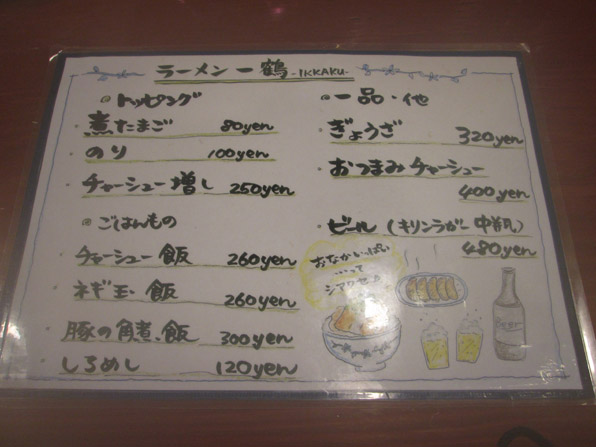 ラーメン一鶴 -IKKAKU-
トッピング
煮たまご 80yen
のり 100yen
チャーシュー増し 250yen
ごはんもの
チャーシュー飯 260yen
ネギ玉飯 260yen
豚の角煮飯 300yen
しろめし 120yen
一品・他
ぎょうざ 320yen
おつまみチャーシュー
400yen
ビール (キリンラガー中瓶)
480yen
おなかいっぱい
・・・って
シアワセ♪
Beer